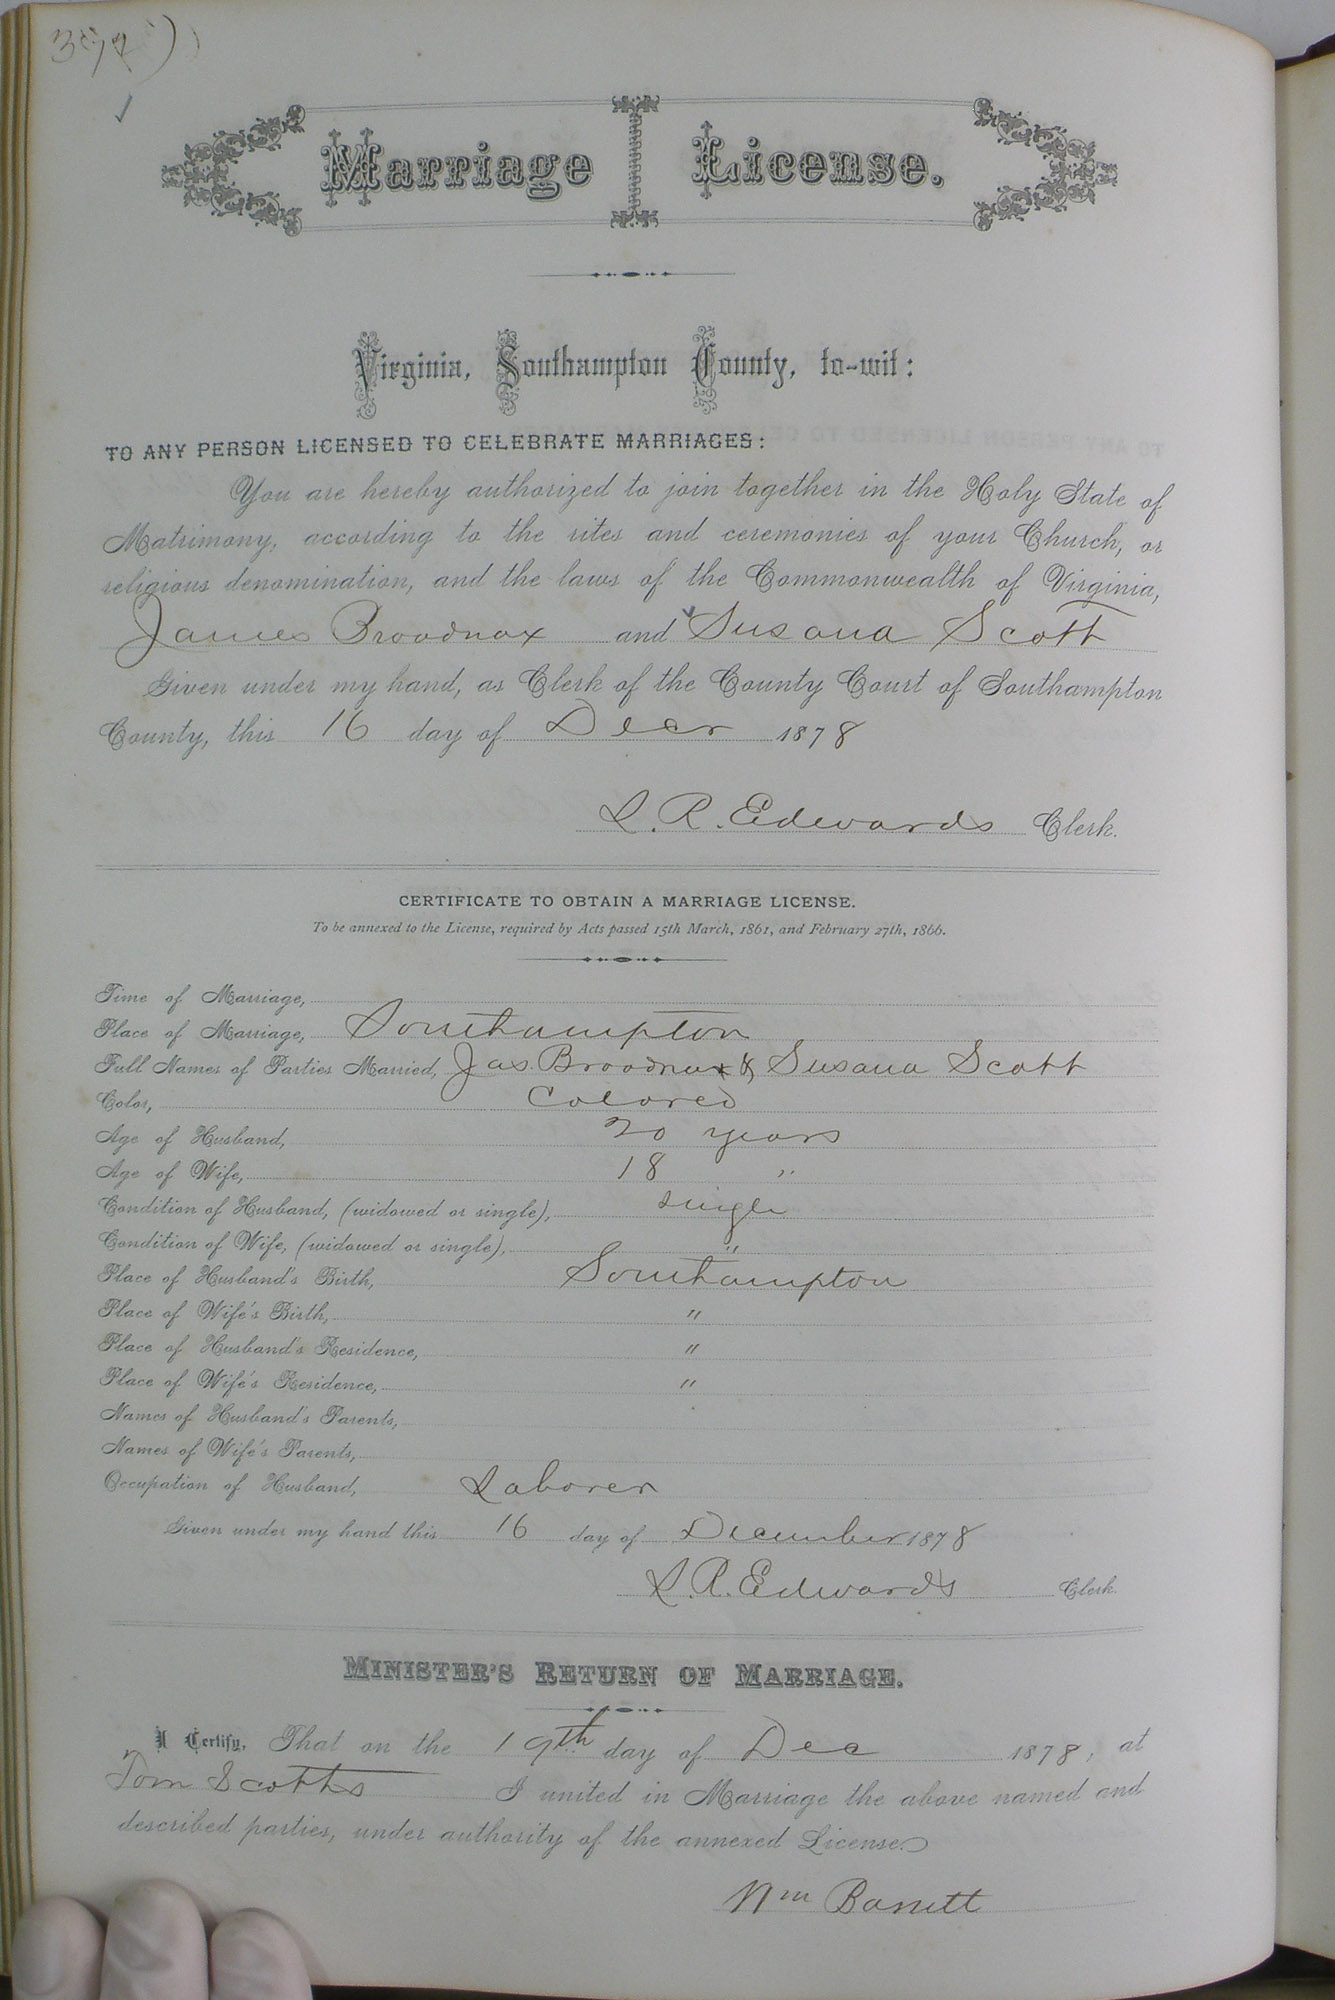 Marriage License.
Virginia, Southampton County, to-wit:
TO ANY PERSON LICENSED TO CELEBRATE MARRIAGES:
You are hereby authorized to join together in the Holy State of
Matrimony, according to the rites and ceremonies of your Church, or
religious denomination, and the laws of the Commonwealth of Virginia,
James Broadnax and Susana Scott
Given under my hand, as Clerk of the County Court of Southampton
County, this 16 day of Decr 1878
L. R. Edwards Clerk.
CERTIFICATE TO OBTAIN A MARRIAGE LICENSE.
To be annexed to the License, required by Acts passed 15th March, 1861, and February 27th, 1866.
Time of Marriage,
Place of Marriage, Southampton
Full Names of Parties Married, Jas. Broadnax & Susana Scott
Color, Colored
Age of Husband, 20 years
Age of Wife, 18 "
Condition of Husband, (widowed or single), single
Condition of Wife, (widowed or single), "
Place of Husband's Birth, Southampton
Place of Wife's Birth, "
Place of Husband's Residence, "
Place of Wife's Residence, "
Names of Husband's Parents,
Names of Wife's Parents,
Occupation of Husband, Laborer
Given under my hand this 16 day of December 1878
L. R. Edwards Clerk.
MINISTER'S RETURN OF MARRIAGE.
I Certify, That on the 19th day of Dec 1878, at
Tom Scotts I united in Marriage the above named and
described parties, under authority of the annexed License.
Wm Barrett